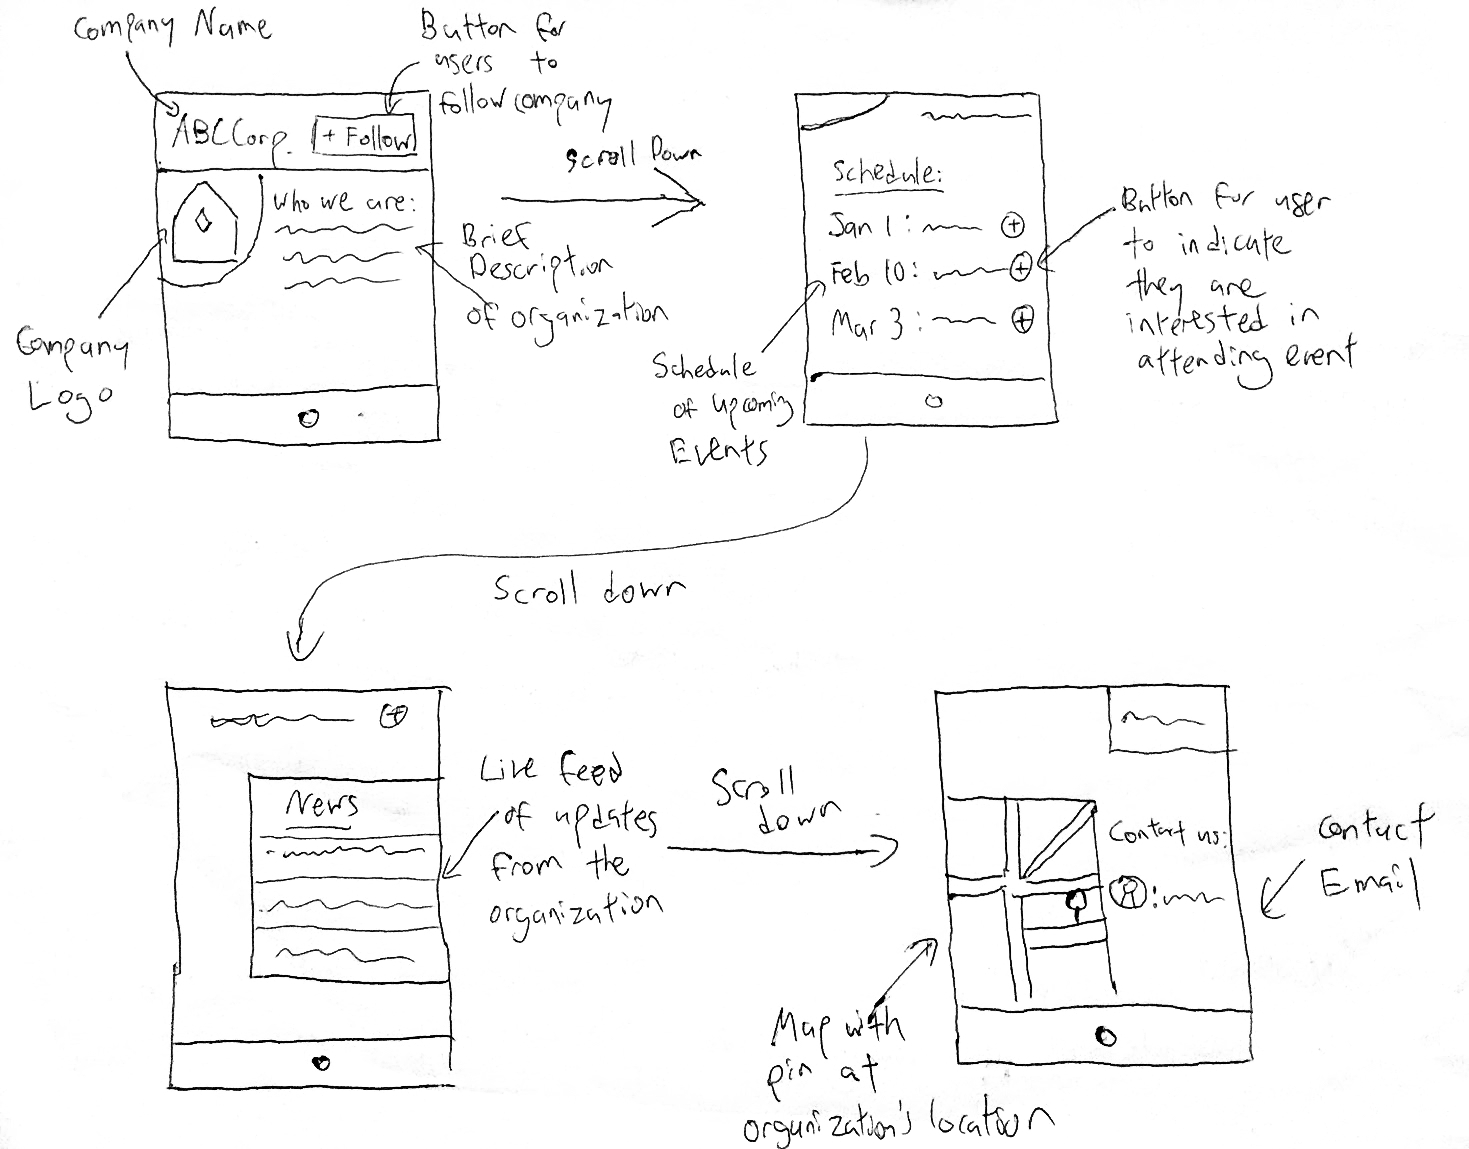 Company Name
Button for
users to
follow company
ABC Corp.
+ Follow
Who we are:
Brief
Description
of organization
Company
Logo
Scroll Down
Schedule:
Jan 1:
Feb 10:
Mar 3:
Button for user
to indicate
they are
interested in
attending event
Schedule
of upcoming
Events
Scroll down
News
Live feed
of updates
from the
organization
Scroll
down
Contact us:
Contact
Email
Map with
pin at
organization's location